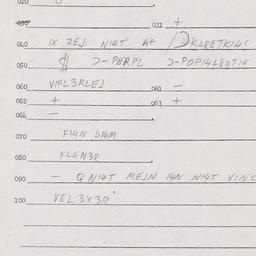 020
030 031 +
040 IX ZEJ NI4T A+ KL8ETKI4S
050 D-PERPL D-POPI4L8OTI4
060 VIFL3RLEJ 061 -
062 + 063 +
064 -
070 FI4N DI4M
080 KLEN38
090 - Q NI4T MEJN I4N NI4T VINC
100 VEL3X3R'